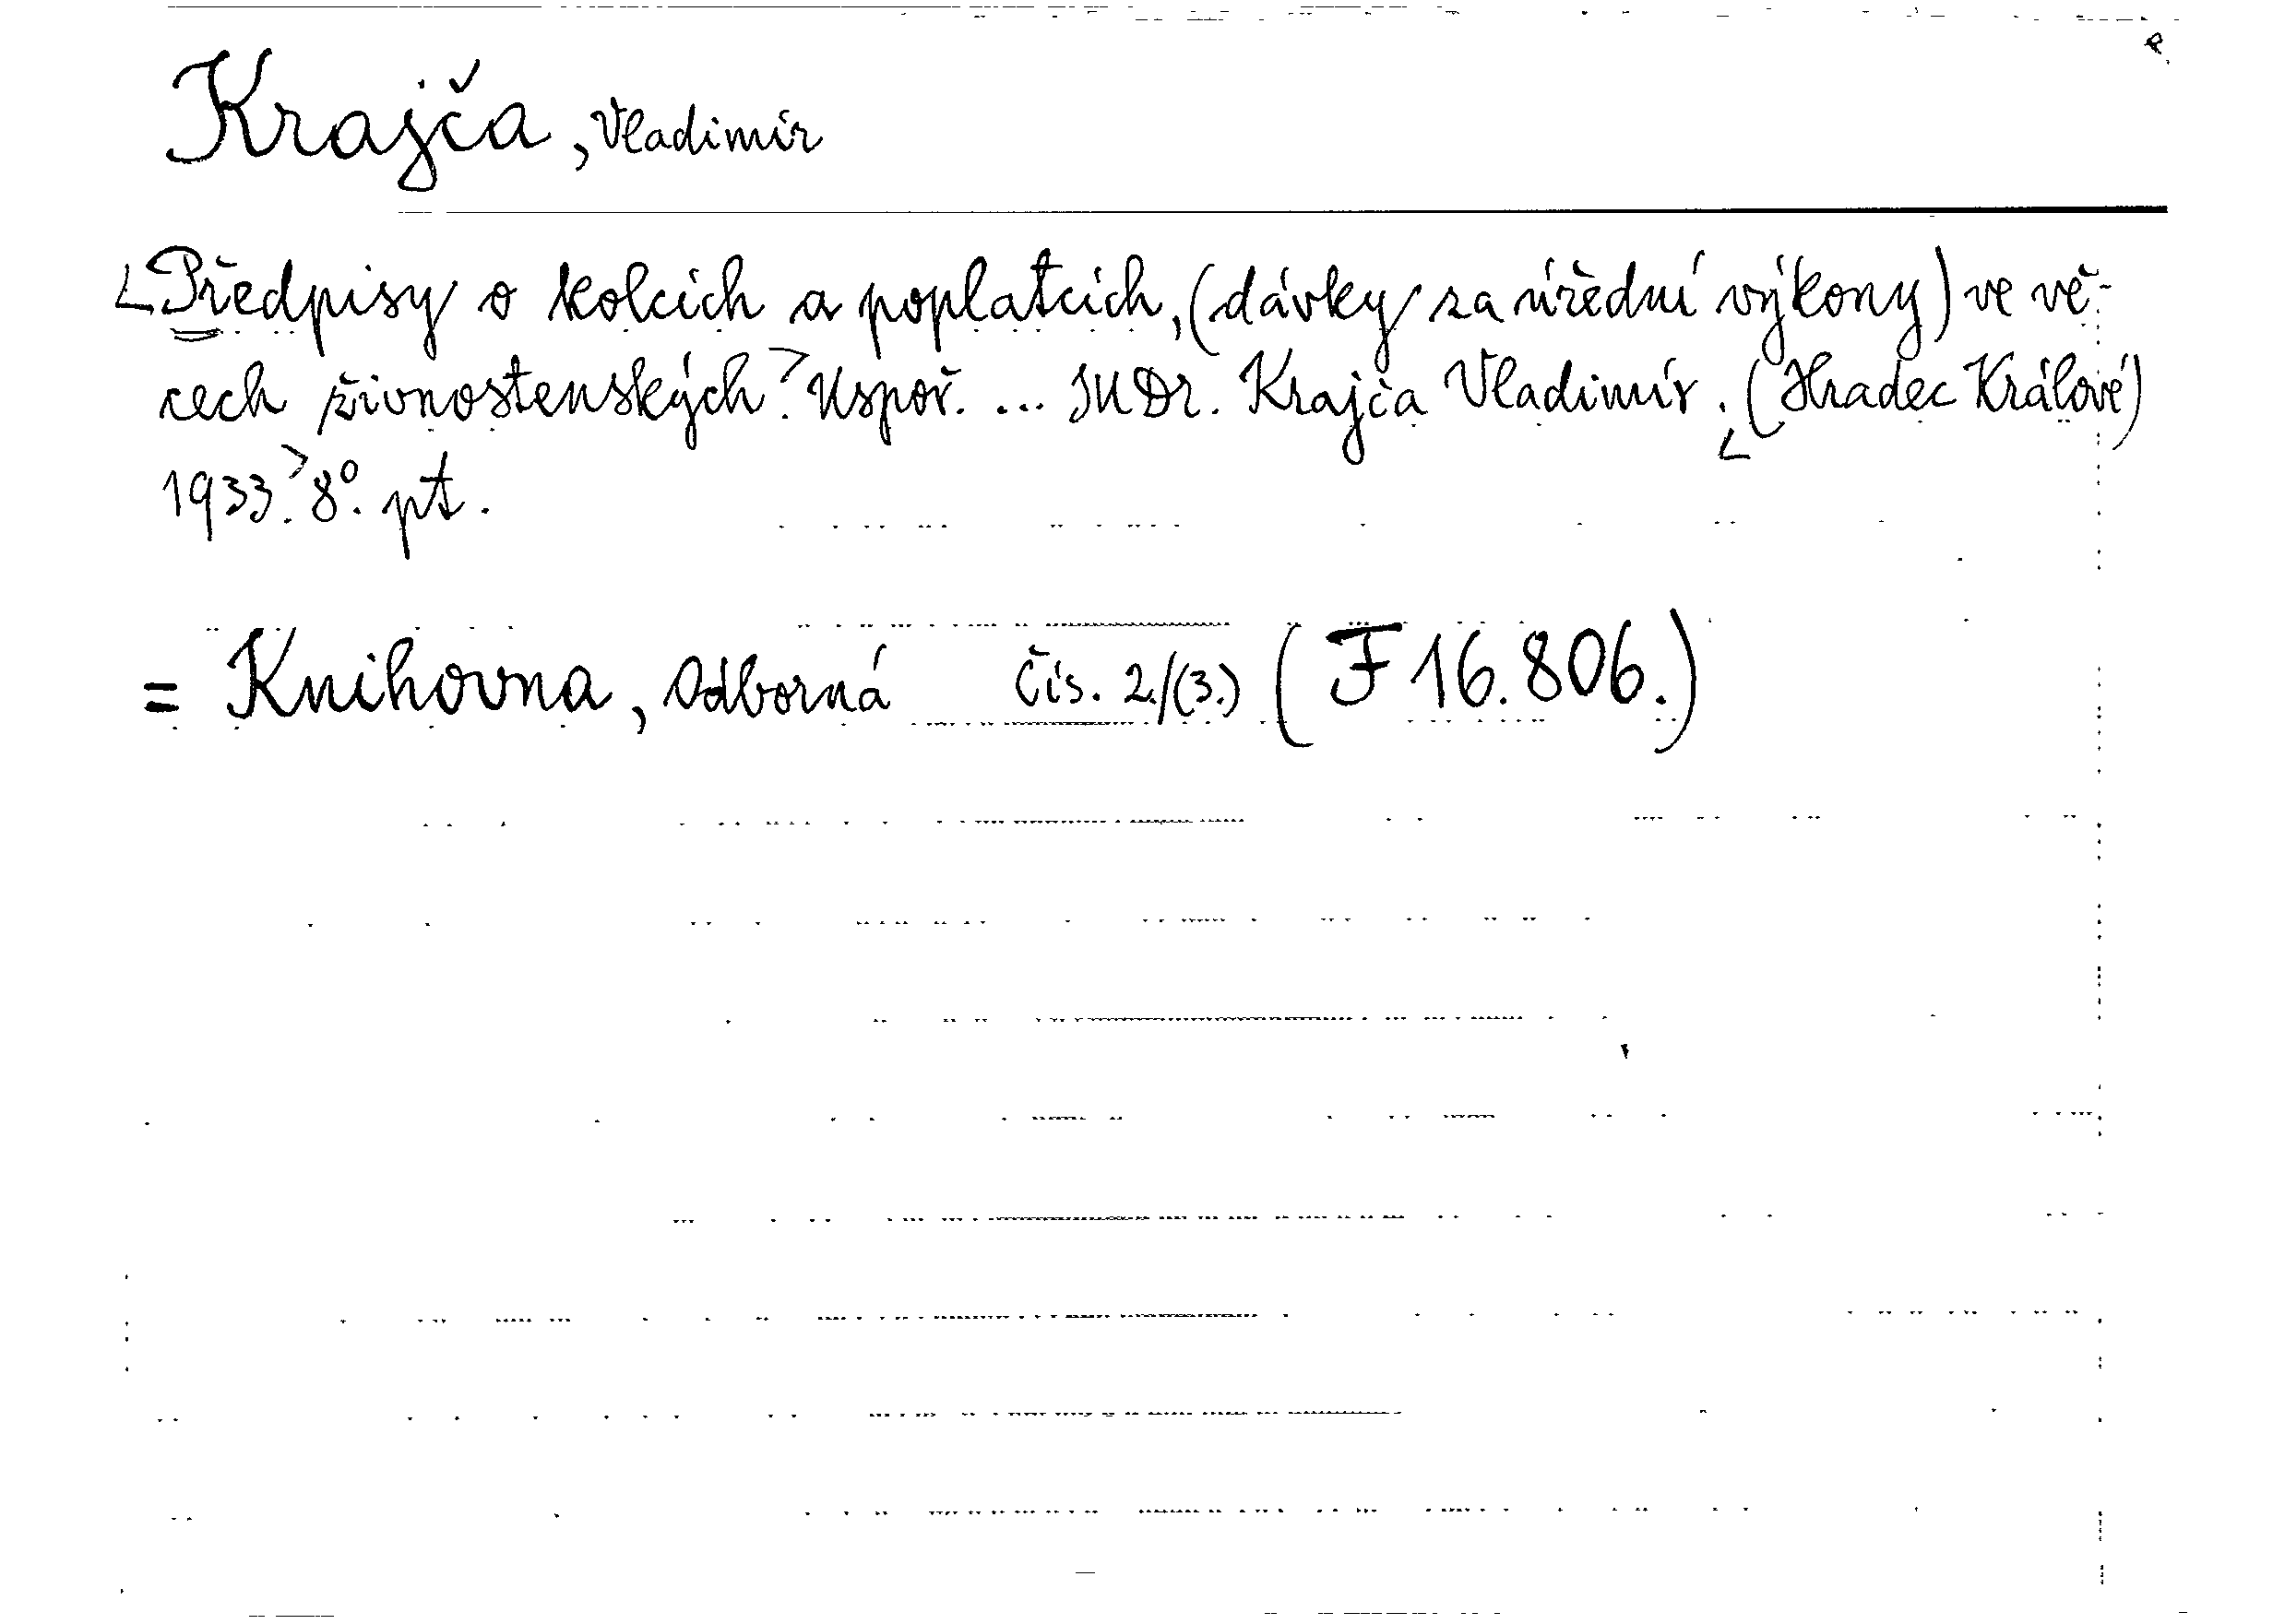 Krajča, Vladimír
Předpisy o kolcích a poplatcích, (dávky za úřední výkony) ve vě-
cech živnostenských. Uspoř. ... JUDr. Krajča Vladimír. (Hradec Králové)
1933. 8°. pt.
= Knihovna, Odborná Čís. 2./(3.) (F 16.806.)